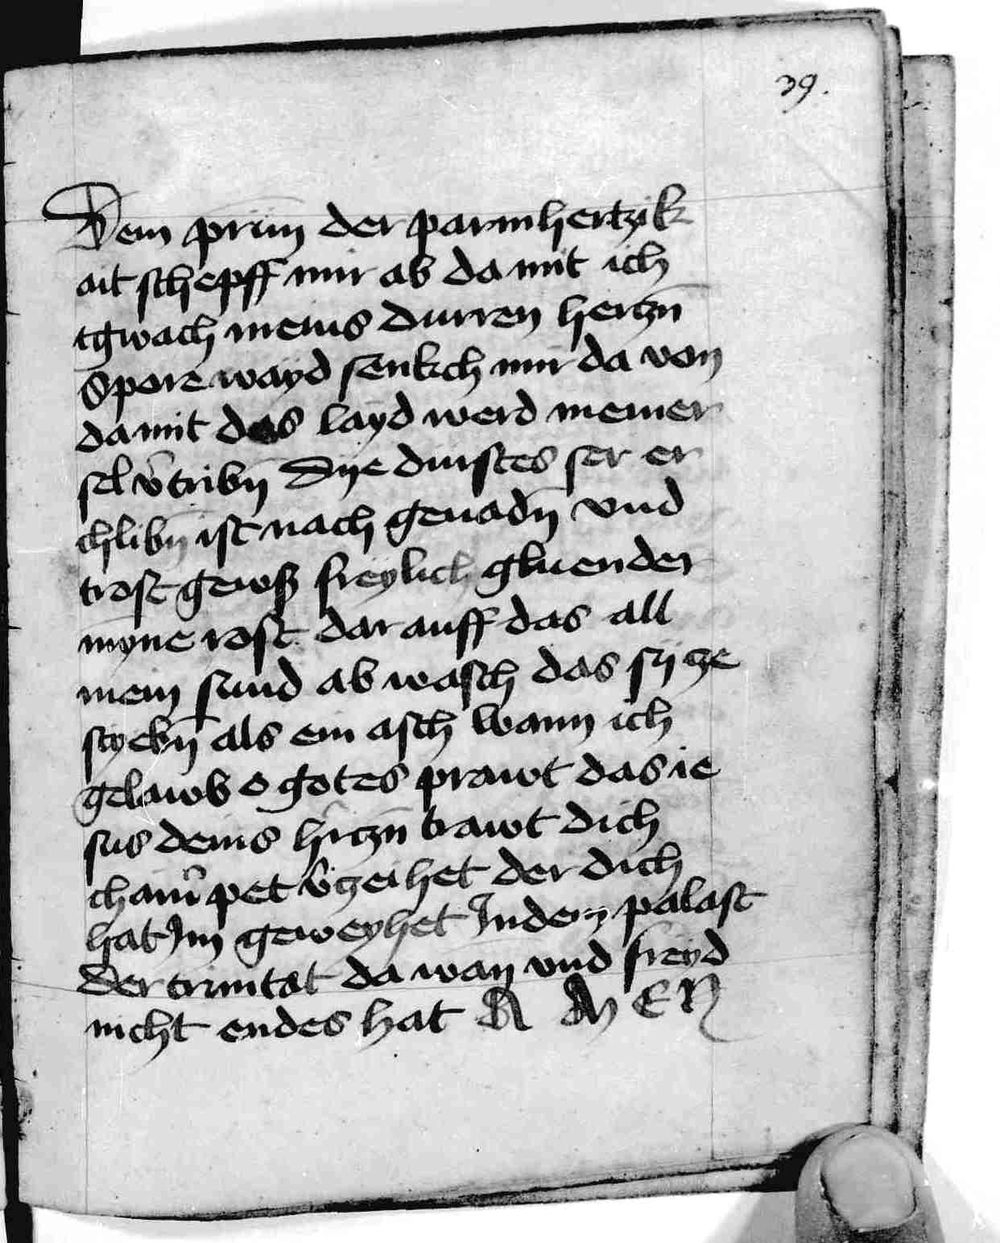 39.
Dem prun der parmhertzik
ait schepff mir ab da mit ich
tgwach meins durren hertzn
Spore wayd senkch mir da von
da mit das layd werd meiner
sel v̄tribn̄ Dye durstes ser er
chlibn̄ ist nach genadn̄ vnd
trost gewß freylich gluender
myne rost dar auff das all
mein sund ab wasch das sy ze
als ein asch wann ich
gelawb o gotes prawt das ie
sus deins hrczn̄ trawt dich
pet v̄zeihet der dich
hat Im geweyhet In den palast
der trinitat da wan vnd freyd
nicht endes hat A M E N